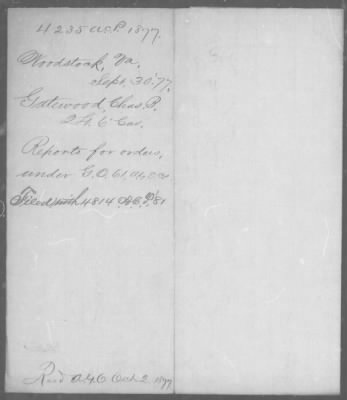 4235 A.C.P. 1877.
Woodstock, Va.
Sept. 30. '77.
Gatewood, Chas. B.
2 Lt. 6" Cav.
Reports for orders,
under G.O. 61, A.G.O.
Filed with 4814 A.C.P. '81
Rec'd A.G.O. Oct. 2, 1877